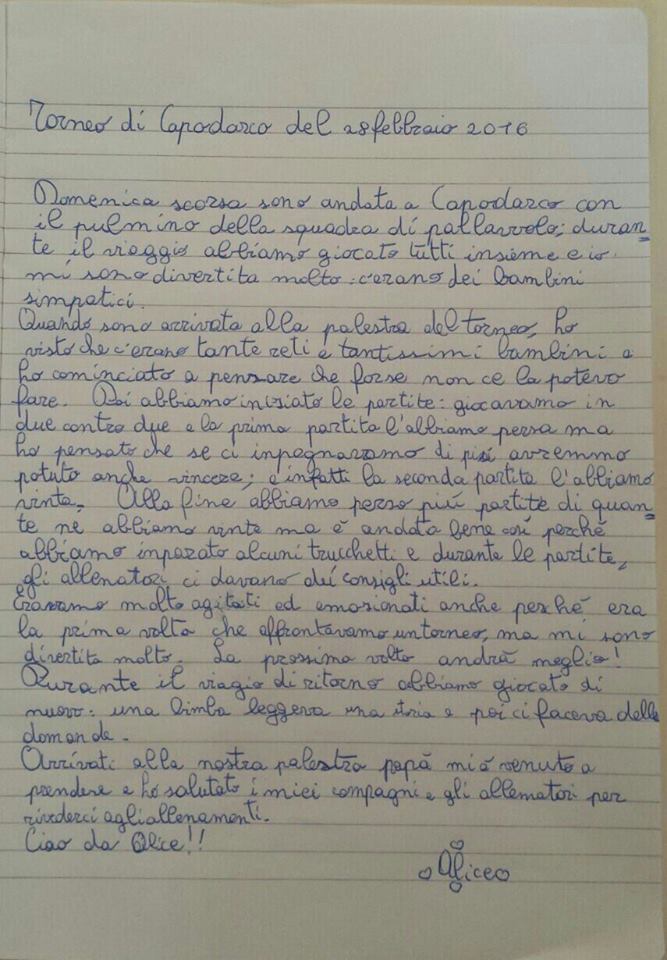 Torneo di Capodarco del 28 febbraio 2016
Domenica scorsa sono andata a Capodarco con
il pulmino della squadra di pallavvolo; duran-
te il viaggio abbiamo giocato tutti insieme e io
mi sono divertita molto: c'erano dei bambini
simpatici.
Quando sono arrivata alla palestra del torneo, ho
visto che c'erano tante reti e tantissimi bambini e
ho cominciato a pensare che forse non ce la potevo
fare. Poi abbiamo inisiato le partite: giocavamo in
due contro due e la prima partita l'abbiamo persa ma
ho pensato che se ci inpegnavamo di più avremmo
potuto anche vincere; e infatti la seconda partita l'abbiamo
vinta. Alla fine abbiamo perso più partite di quan-
te ne abbiamo vinte ma è andata bene così perché
abbiamo inparato alcuni trucchetti e durante le partite,
gli allenatori ci davano dei consigli utili.
Eravamo molto agitati ed emosionati anche perché era
la prima volta che affrontavamo un torneo, ma mi sono
divertita molto. La prossima volta andrà meglio!
Durante il viagio di ritorno abbiamo giocato di
nuovo: una bimba leggeva una storia e poi ci faceva delle
domande.
Arrivati alla nostra palestra papà mi è venuto a
prendere e ho salutato i miei compagni e gli allenatori per
rivederci agli allenamenti.
Ciao da Alice!!
Alice